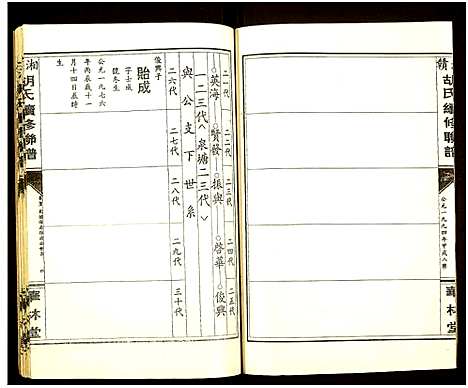 胡氏續修聯譜
公元一九九四年甲戌八修
華林堂
二一代
二二代
二三代
二四代
二五代
○英海—○贊發—○振興—○啓華—○俊興
一二三代〈泉塘二三代〉
與公支下世系
二六代
二七代
二八代
二九代
三十代
俊興子
貽成
字士成
號冬生
公元一九七六
年丙辰歲十一
月十四日辰時
生
湘
胡氏續修聯譜
華林堂